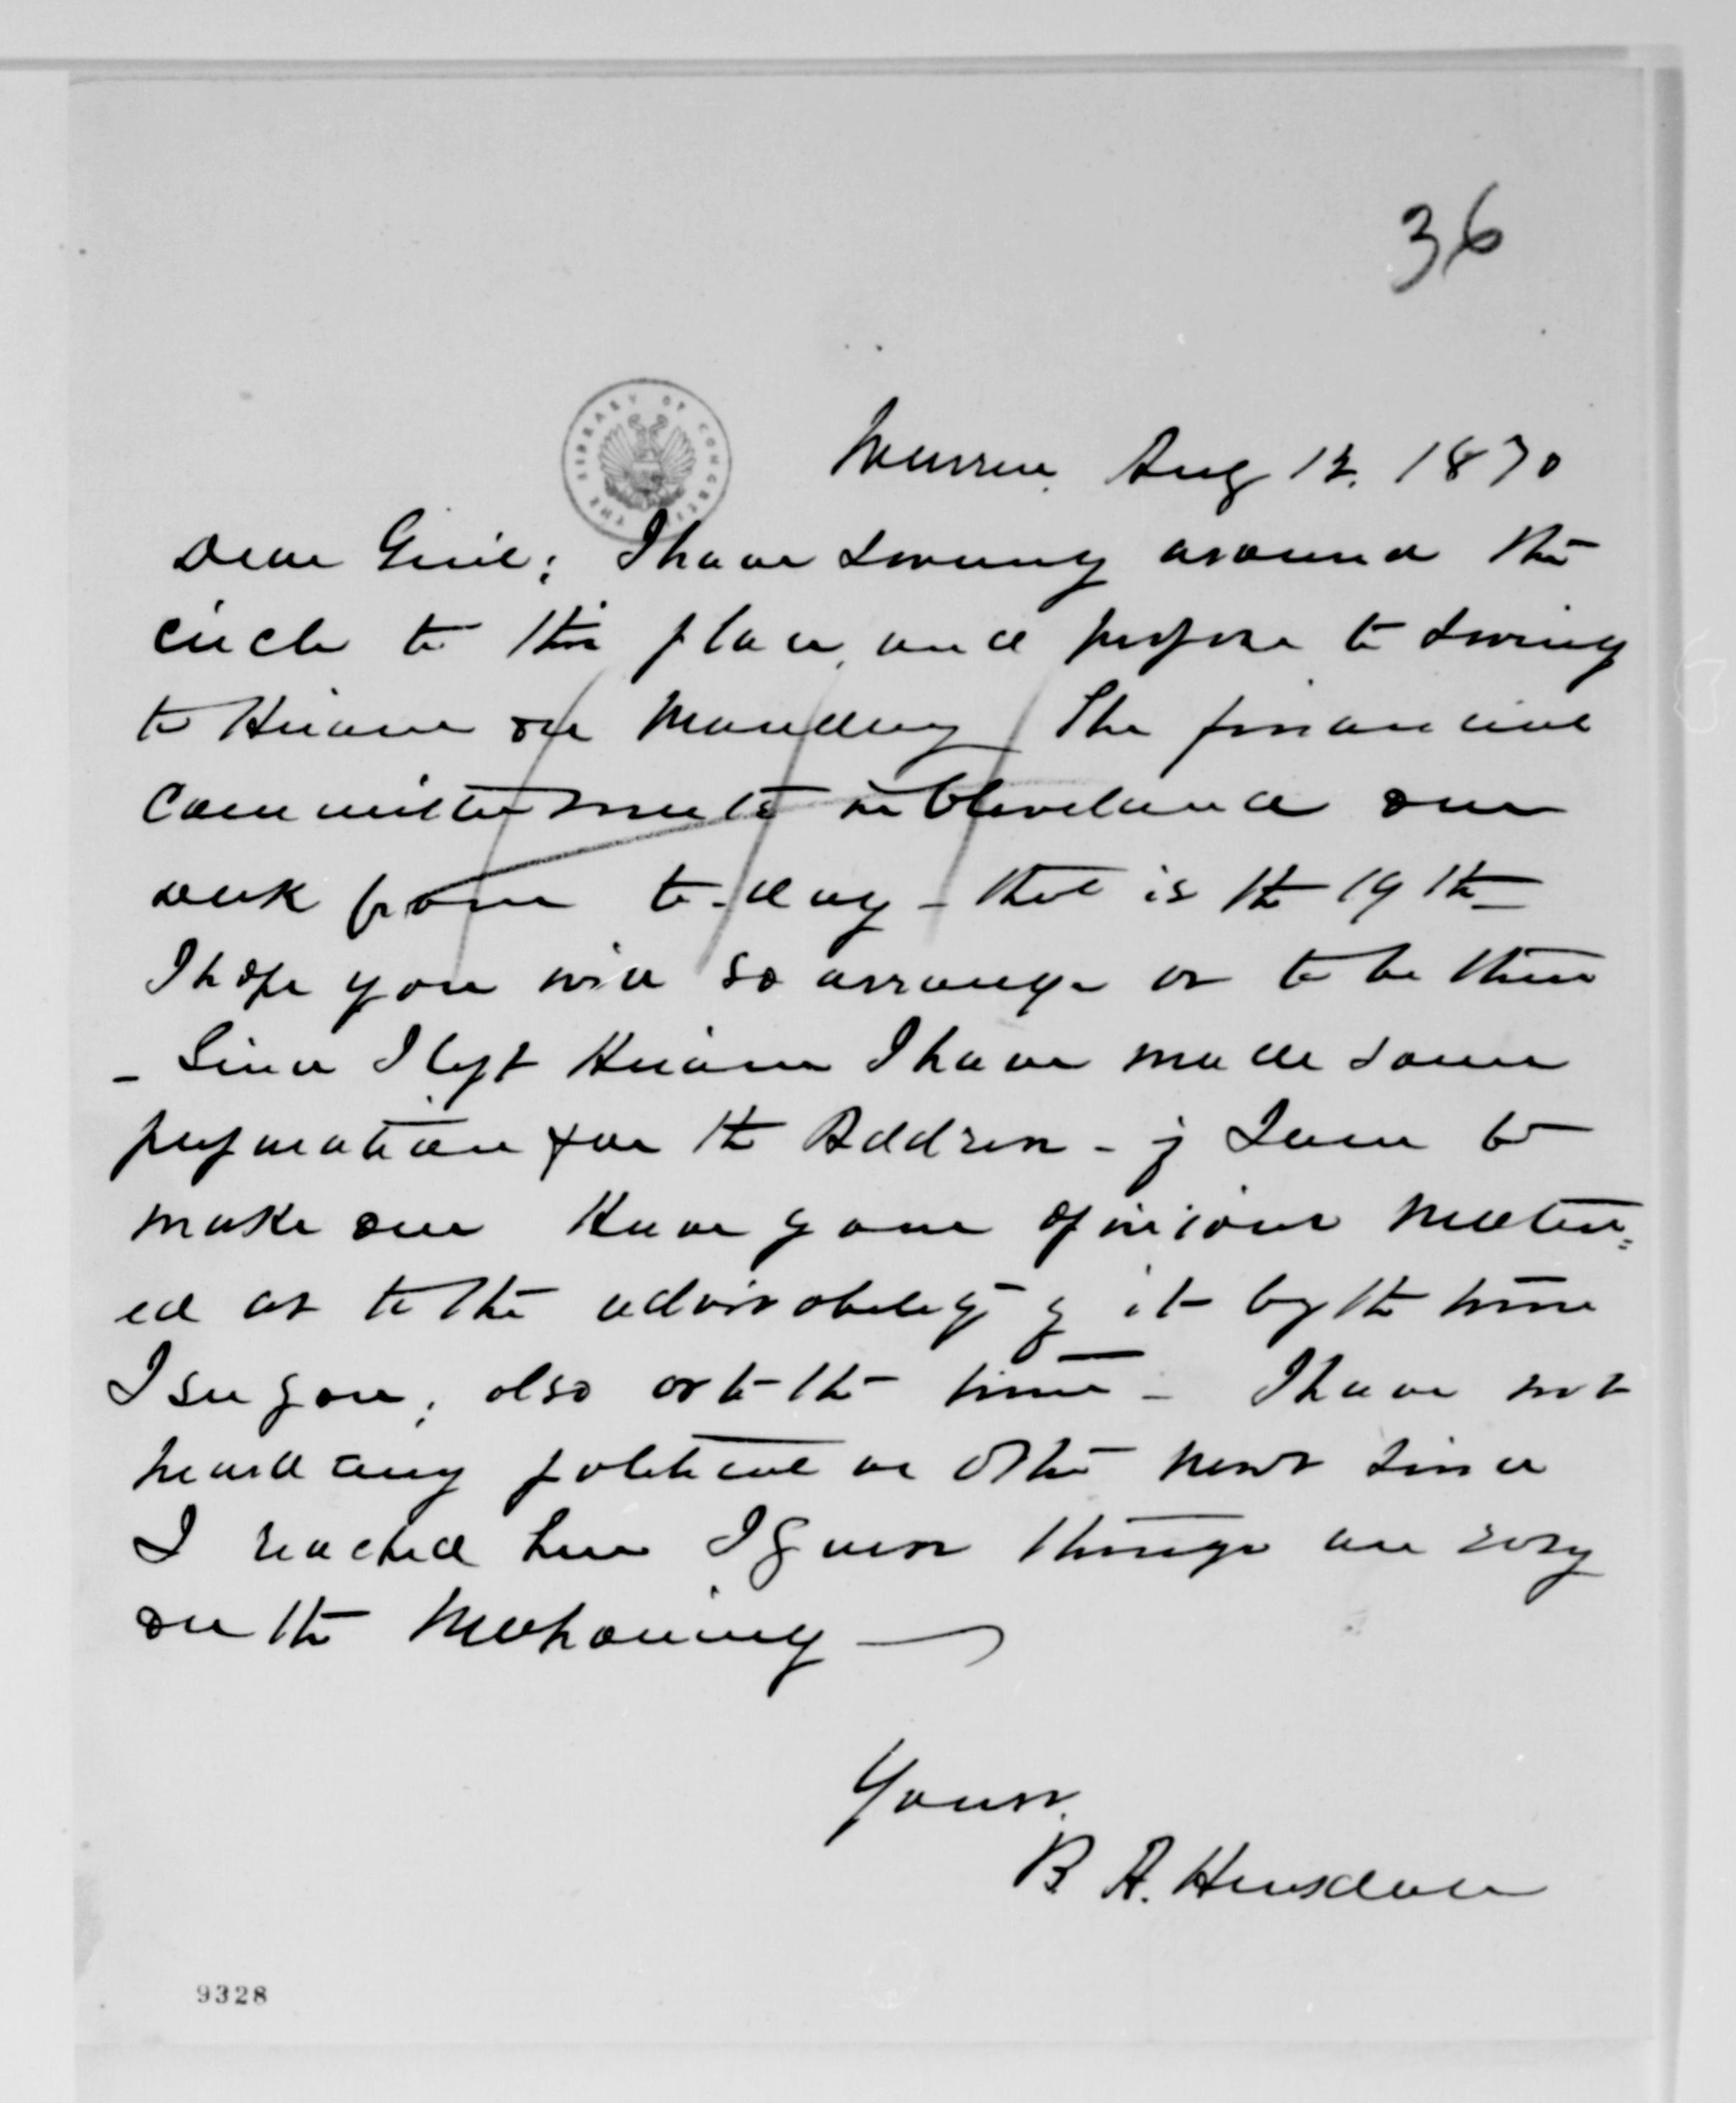 36
THE LIBRARY OF CONGRESS
Warren, Aug 12, 1870
Dear Genl: I have swung around the
circle to this place, and propose to swing
to Hiram on Monday The financial
Committee meets in Cleveland one
week from to-day - that is the 19th
I hope you will so arrange as to be there
- Since I left Hiram I have made some
preparation for the Address - if I am to
make one Have your opinions matur=
ed as to the advisability of it by the time
I see you; also as to the time - I have not
heard any political or other news since
I reached here I guess things are rosy
on the Mahoning
Yours,
B. A. Hinsdale
9328